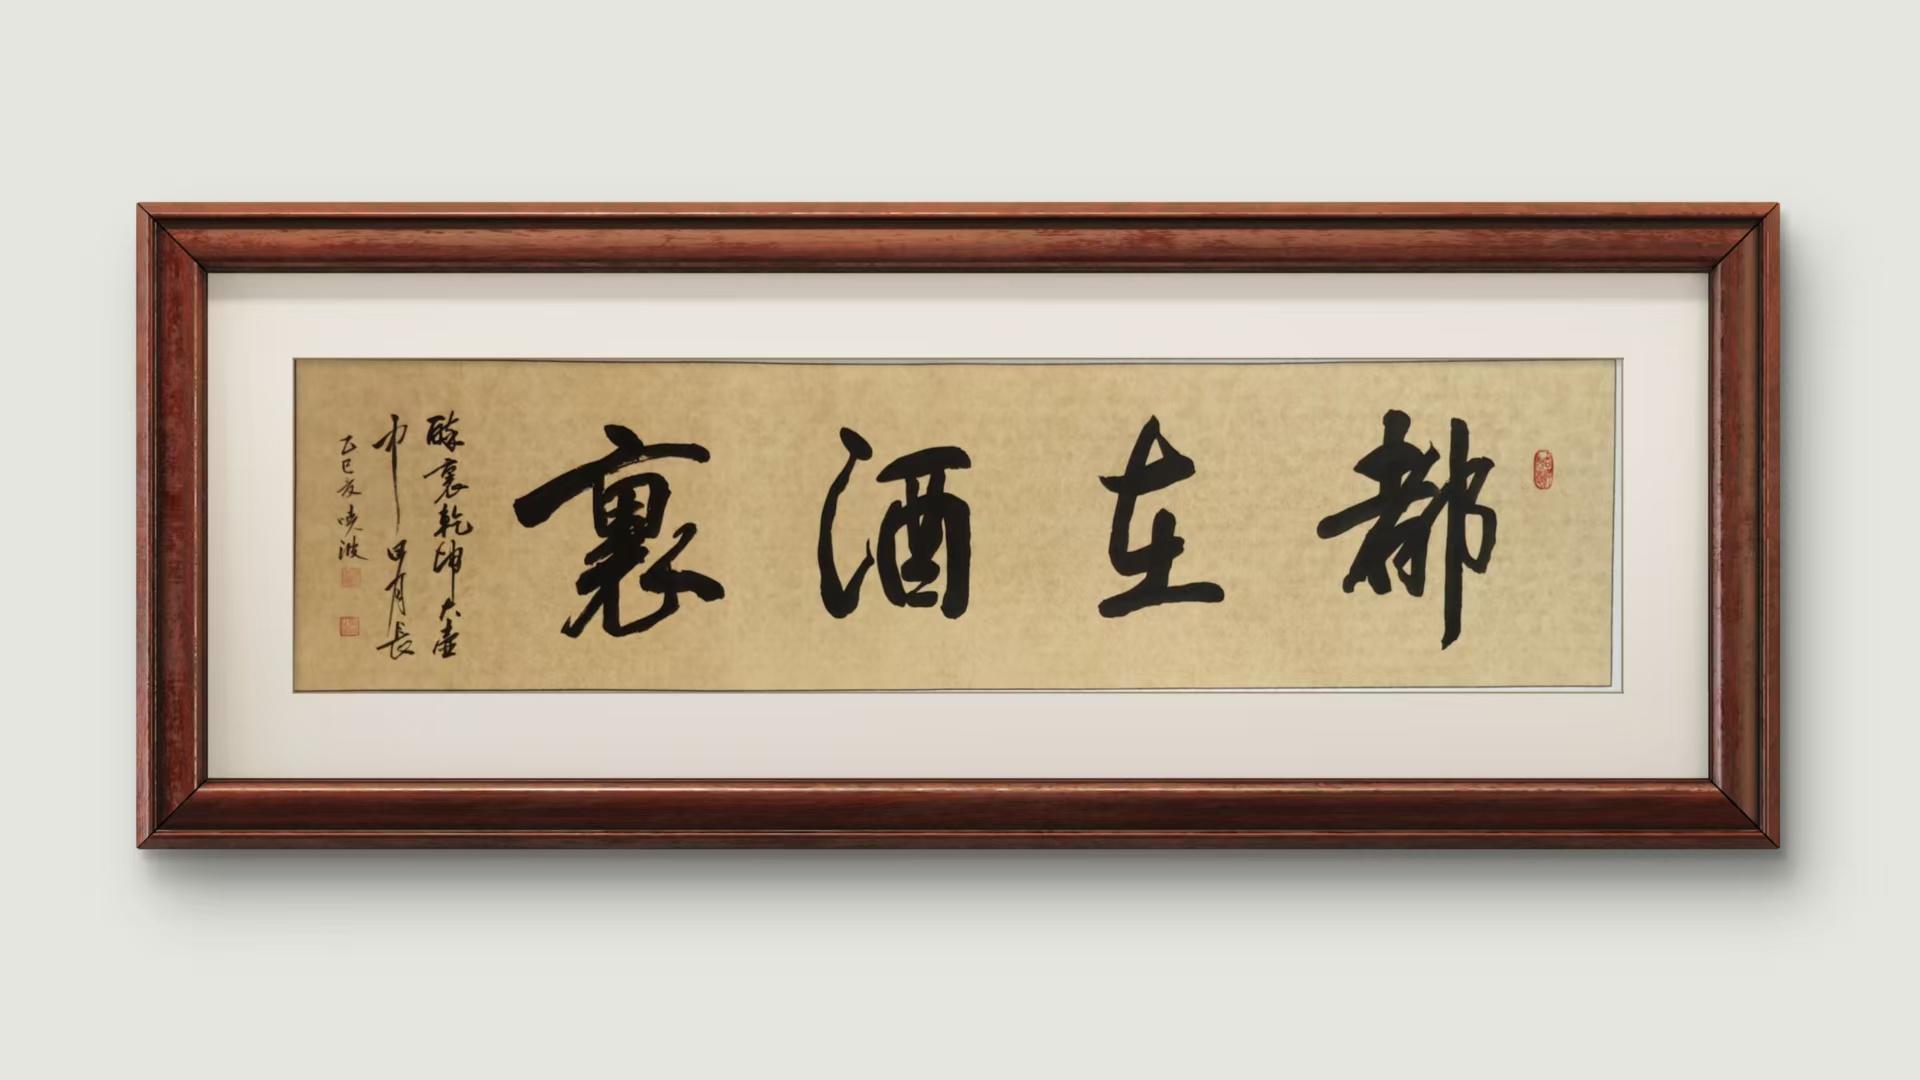 都在酒裏
醉裏乾坤大壺
中日月長
乙巳夏曉波